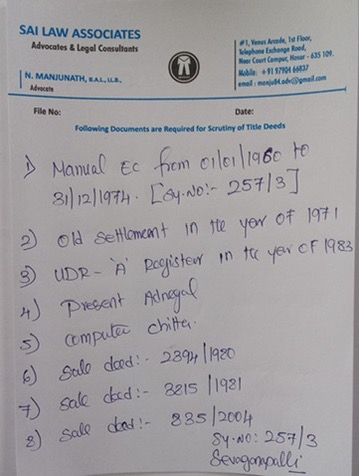 SAI LAW ASSOCIATES
Advocates & Legal Consultants
N. MANJUNATH, B.A.L., LL.B.,
Advocate
#1, Venus Arcade, 1st Floor,
Telephone Exchange Road,
Near Court Campus, Hosur - 635 109.
Mobile: +91 97904 66837
email: manju84.adv@gmail.com
File No:
Date:
Following Documents are Required for Scrutiny of Title Deeds
1) Manual EC from 01/01/1960 to
31/12/1974. [Sy.No:- 257/3]
2) Old Settlement in the year OF 1971
3) UDR - 'A' Register in the year OF 1983
4) Present Adnegal
5) Computer chitta.
6) Sale deed:- 2394/1980
7) Sale deed:- 3215/1981
8) Sale deed:- 835/2004
Sy.NO: 257/3
Sevaganapalli